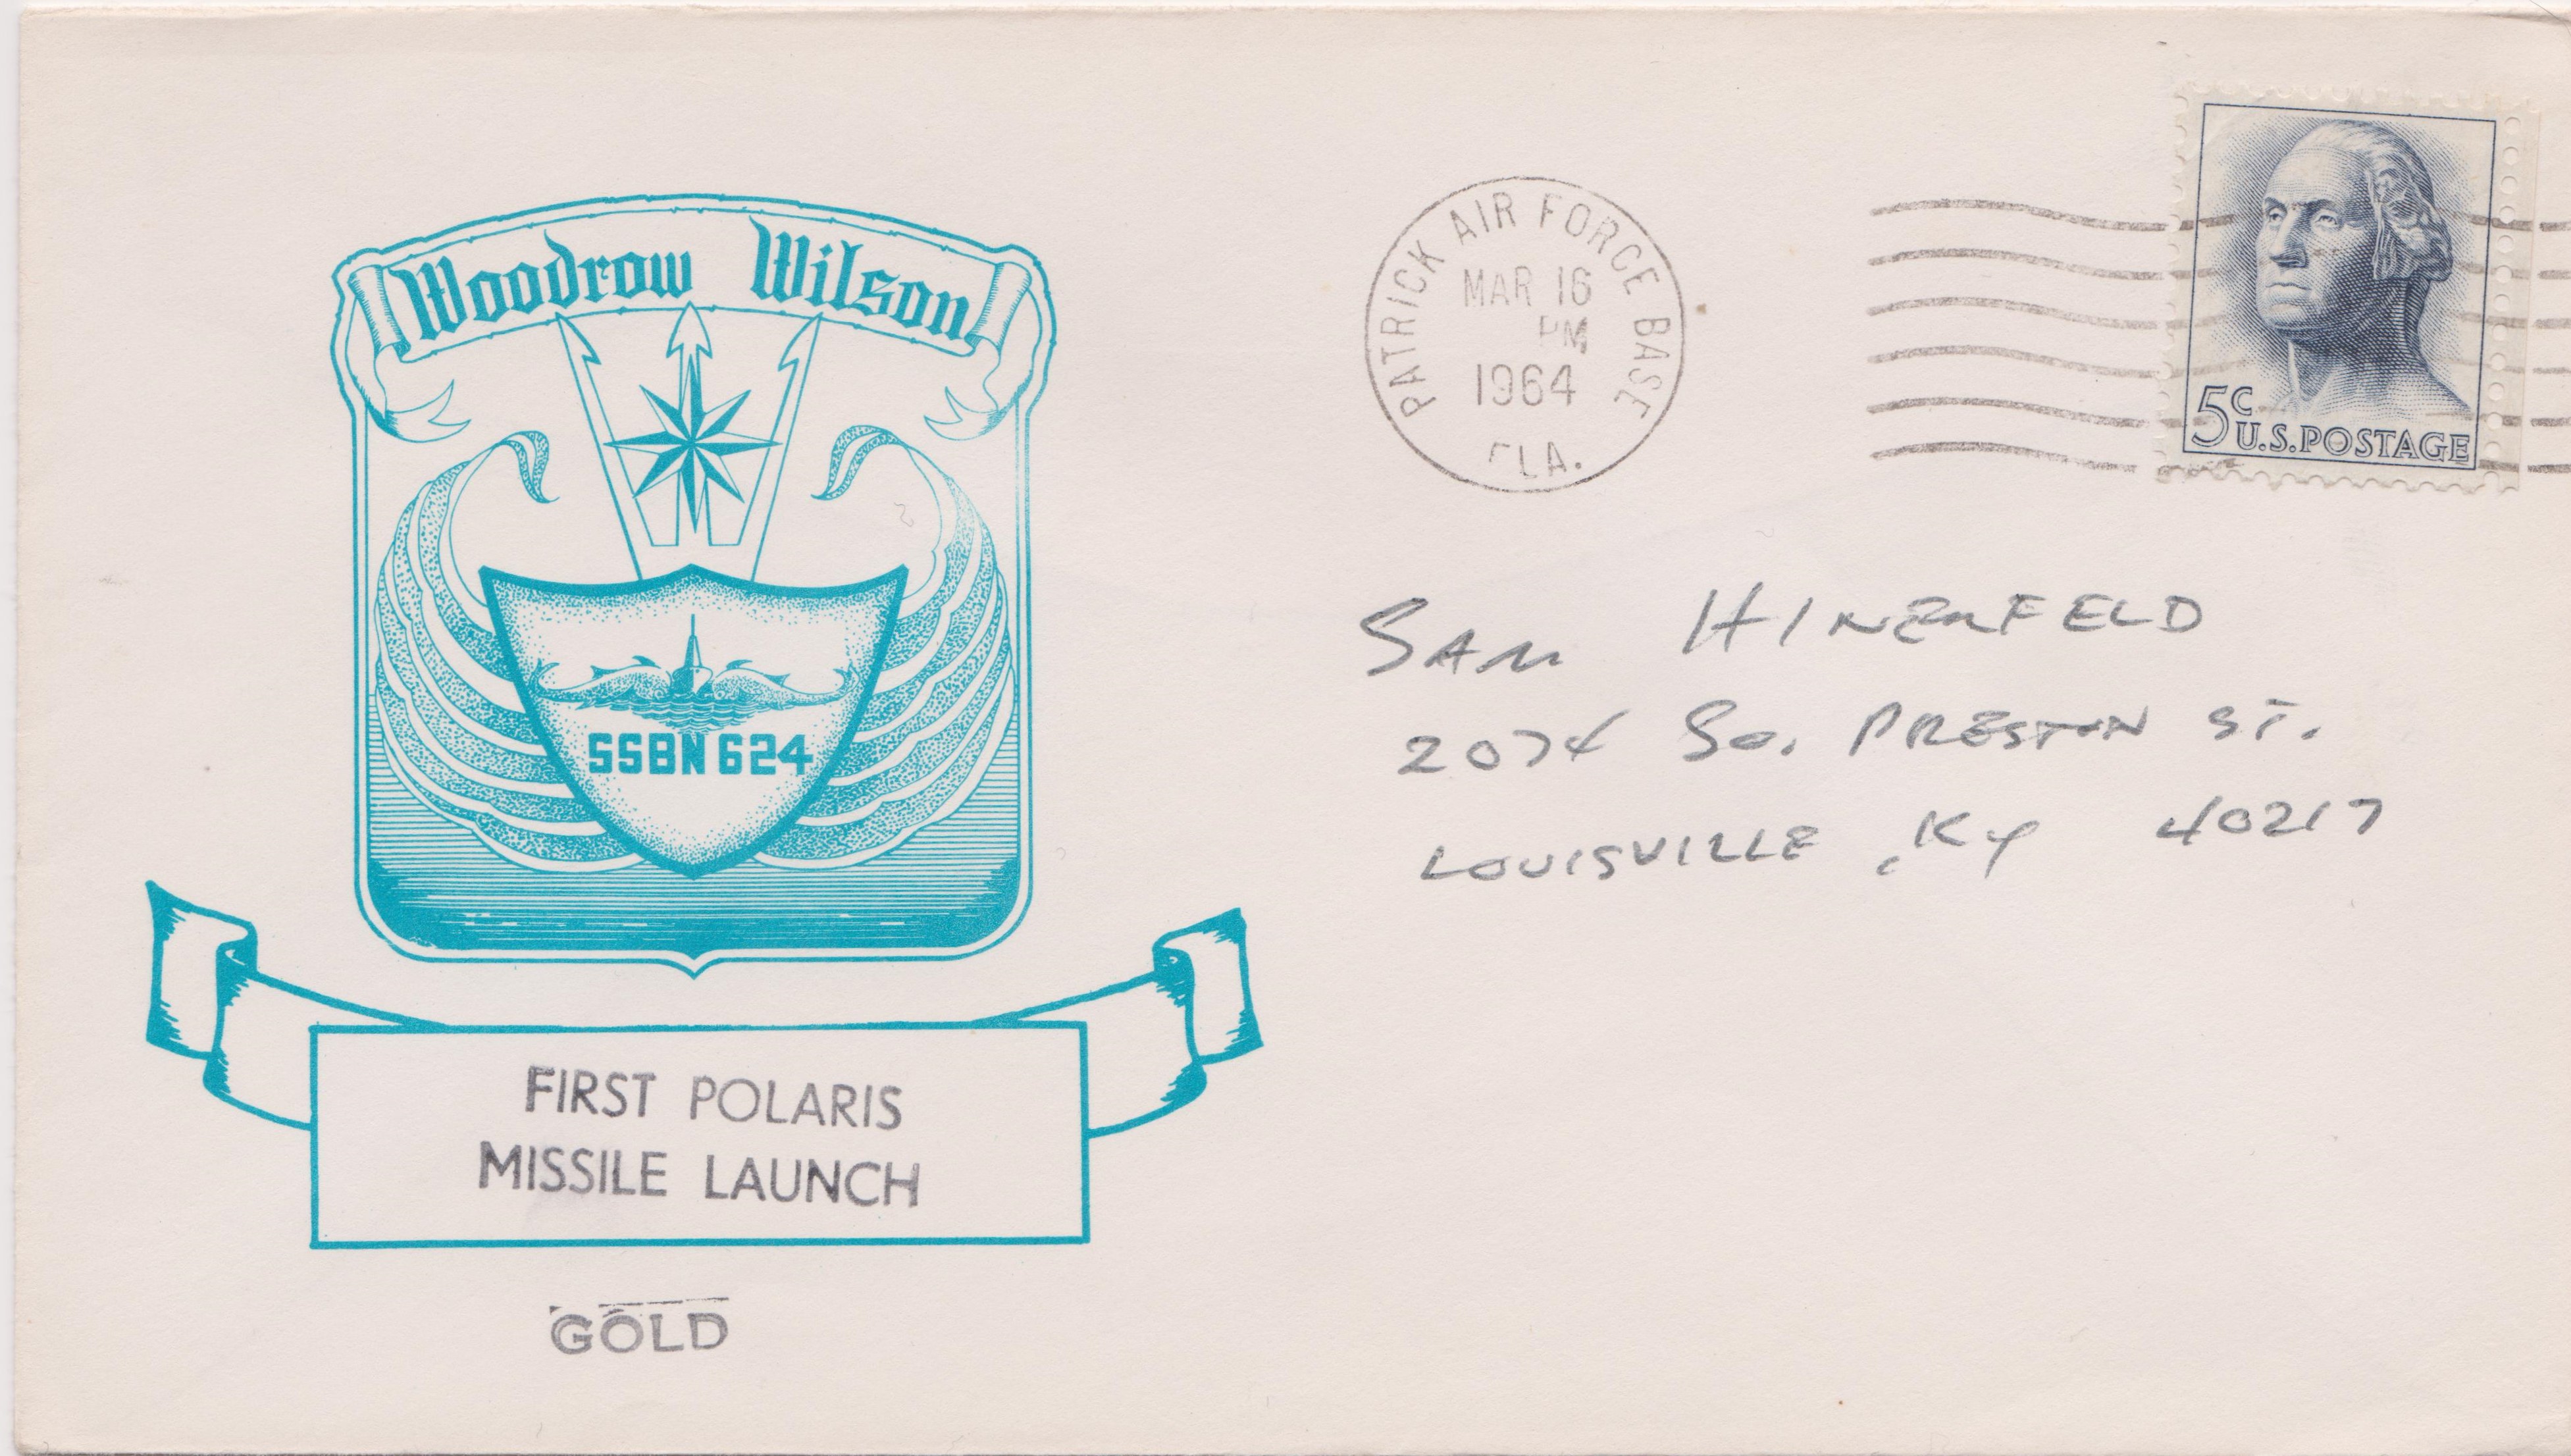 Woodrow Wilson
SSBN 624
FIRST POLARIS
MISSILE LAUNCH
GOLD
PATRICK AIR FORCE BASE
MAR 16
PM
1964
FLA.
5c
U.S. POSTAGE
SAM HINERFELD
2074 So. PRESTON ST.
LOUISVILLE, KY 40217